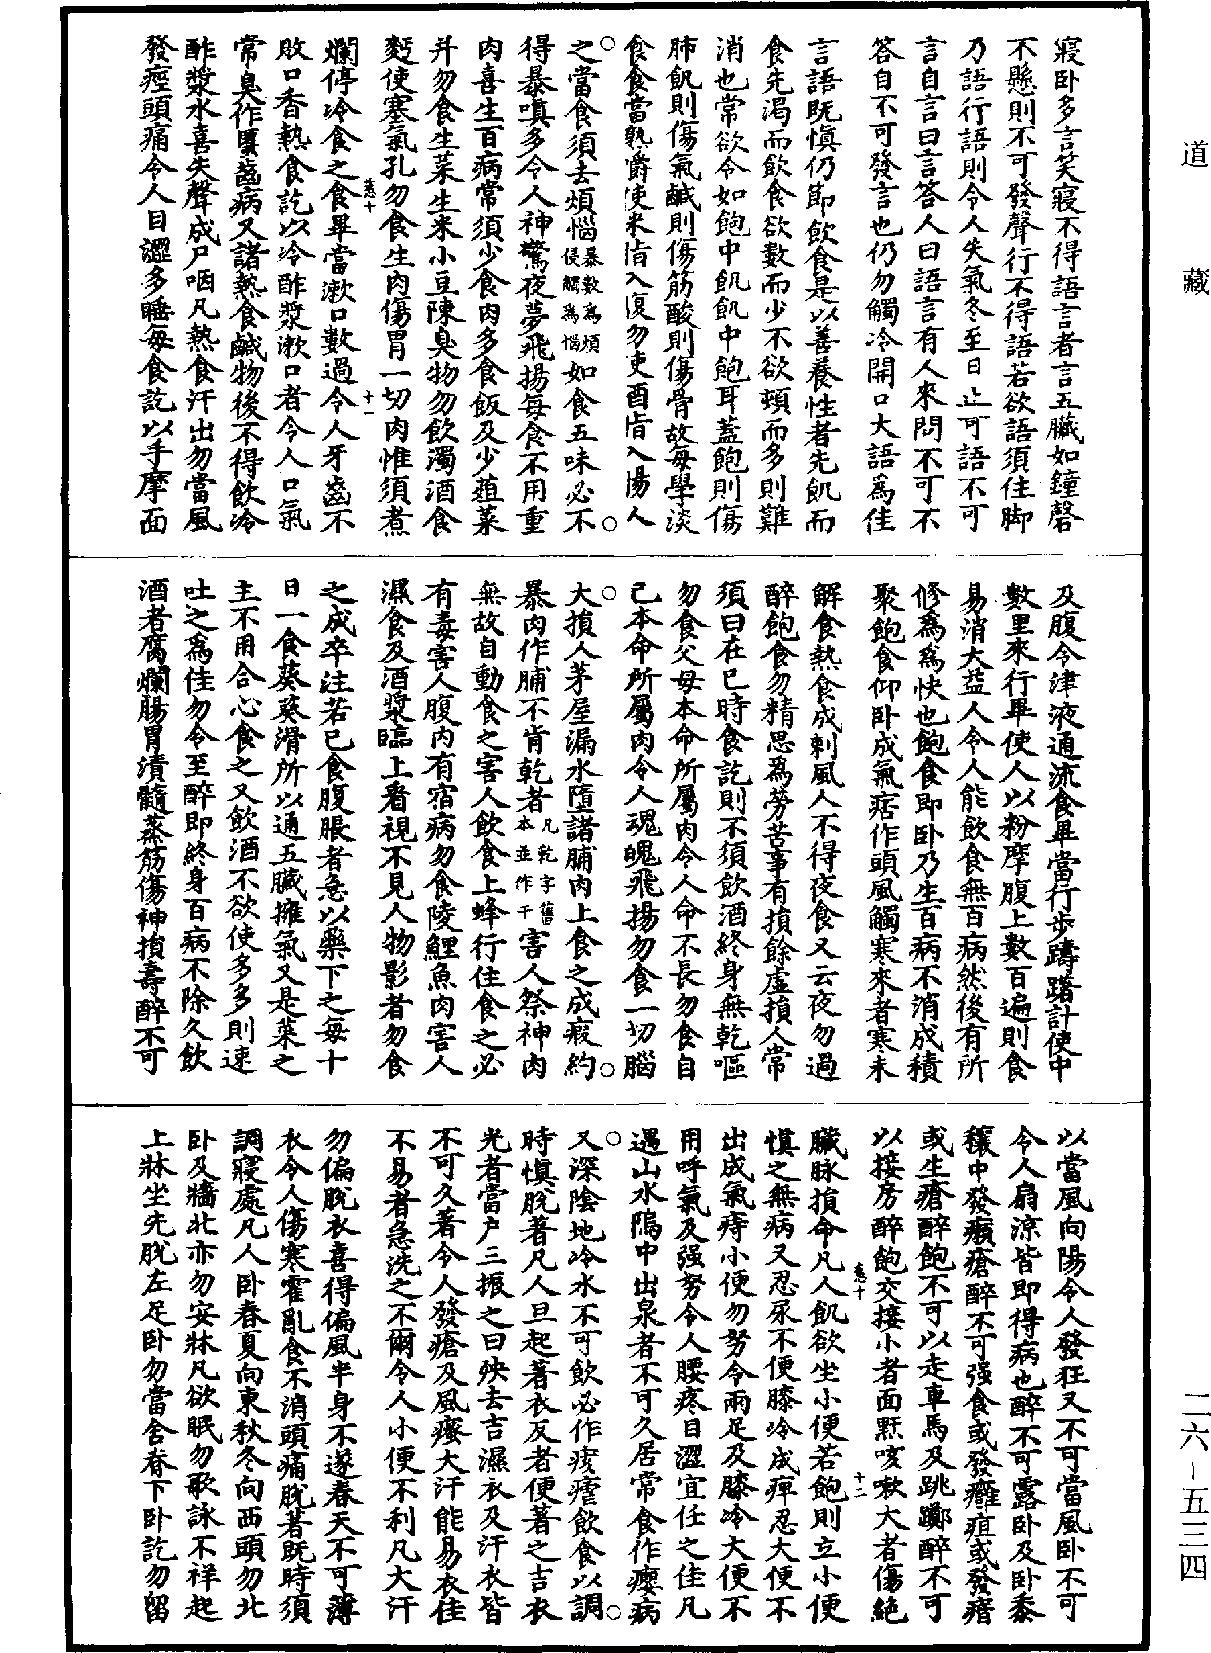 道藏
寢卧多言笑寢不得語言者言五臟如鐘磬
不懸則不可發聲行不得語若欲語須住脚
乃語行語則令人失氣冬至日止可語不可
言自言曰言答人曰語言有人來問不可不
答自不可發言也仍勿觸冷開口大語為佳
言語既慎仍節飲食是以善養性者先飢而
食先渴而飲食欲數而少不欲頓而多則難
消也常欲令如飽中飢飢中飽耳蓋飽則傷
肺飢則傷氣鹹則傷筋酸則傷骨故每學淡
食食當熟嚼使米脂入復勿使酒脂入腸人
之當食須去煩惱暴數為煩侵觸為惱如食五味必不
得暴嗔多令人神驚夜夢飛揚每食不用重
肉喜生百病常須少食肉多食飯及少葅菜
并勿食生菜生米小豆陳臭物勿飲濁酒食
麪使塞氣孔勿食生肉傷胃一切肉惟須煮
十一
爛停冷食之食畢當漱口數過令人牙齒不
敗口香熱食訖以冷酢漿漱口者令人口氣
常臭作䘌齒病又諸熱食鹹物後不得飲冷
酢漿水喜失聲成尸咽凡熱食汗出勿當風
發痙頭痛令人目澀多睡每食訖以手摩面
及腹令津液通流食畢當行步躊躇計使中
數里來行畢使人以粉摩腹上數百遍則食
易消大益人令人能飲食無百病然後有所
修為為快也飽食即卧乃生百病不消成積
聚飽食仰卧成氣痞作頭風觸寒來者寒未
解食熱食成刺風人不得夜食又云夜勿過
醉飽食勿精思為勞苦事有損餘虛損人常
須日在巳時食訖則不須飲酒終身無乾嘔
勿食父母本命所屬肉令人命不長勿食自
己本命所屬肉令人魂魄飛揚勿食一切腦
大損人茅屋漏水墮諸脯肉上食之成瘕約
暴肉作脯不肯乾者凡乾字舊本並作干害人祭神肉
無故自動食之害人飲食上蜂行住食之必
有毒害人腹內有宿病勿食陵鯉魚肉害人
濕食及酒漿臨上看視不見人物影者勿食
之成卒注若已食腹脹者急以藥下之每十
日一食葵葵滑所以通五臟擁氣又是菜之
主不用合心食之又飲酒不欲使多多則速
吐之為佳勿令至醉即終身百病不除久飲
酒者腐爛腸胃漬髓蒸筋傷神損壽醉不可
以當風向陽令人發狂又不可當風卧不可
令人扇涼皆即得病也醉不可露卧及卧黍
穰中發癩瘡醉不可强食或發癰疽或發瘖
或生瘡醉飽不可以走車馬及跳躑醉不可
以接房醉飽交接小者面䵟咳嗽大者傷絕
十二
臟脉損命凡人飢欲坐小便若飽則立小便
慎之無病又忍尿不便膝冷成痺忍大便不
出成氣痔小便勿努令兩足及膝冷大便不
用呼氣及强努令人腰疼目澀宜任之佳凡
遇山水隝中出泉者不可久居常食作癭病
又深陰地冷水不可飲必作痎瘧飲食以調
時慎脫著凡人旦起著衣反者便著之吉衣
光者當户三振之曰殃去吉濕衣及汗衣皆
不可久著令人發瘡及風瘙大汗能易衣佳
不易者急洗之不爾令人小便不利凡大汗
勿偏脫衣喜得偏風半身不遂春天不可薄
衣令人傷寒霍亂食不消頭痛脫著既時須
調寢處凡人卧春夏向東秋冬向西頭勿北
卧及牆北亦勿安牀凡欲眠勿歌詠不祥起
上牀坐先脫左足卧勿當舍脊下卧訖勿留
二六-五三四